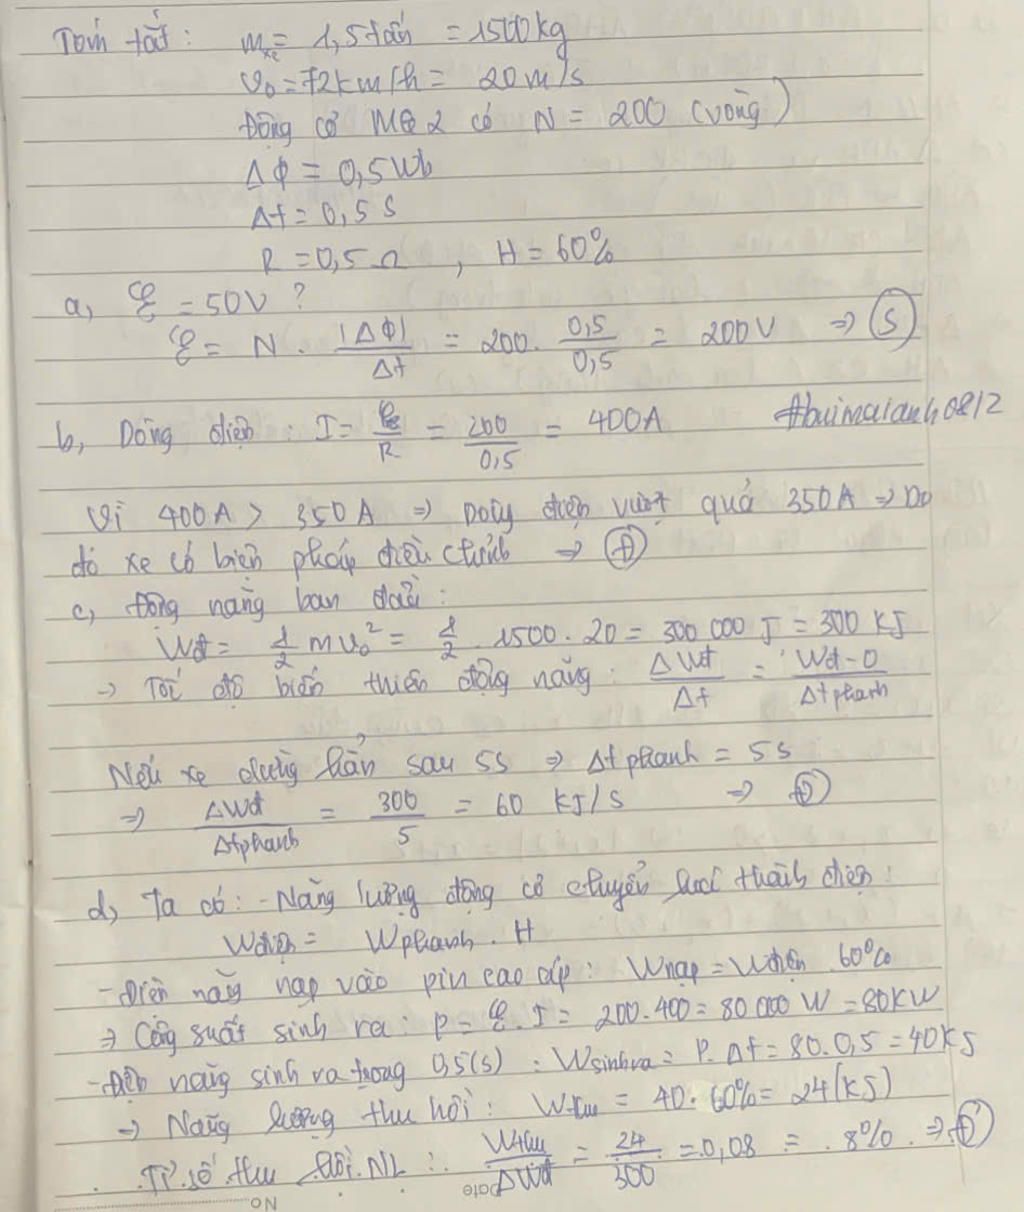 Tóm tắt: mxe = 1,5 tấn = 1500kg
v₀ = 72km/h = 20m/s
Động cơ MG2 có N = 200 (vòng)
ΔΦ = 0,5Wb
Δt = 0,5 s
R = 0,5 Ω , H = 60%
a, ℰ = 50V ?
ℰ = N . |ΔΦ|/Δt = 200. 0,5/0,5 = 200V ⇒ Ⓢ
b, Dòng điện : I = ℰ/R = 200/0,5 = 400A #buimaianh0812
Vì 400A > 350A ⇒ Dòng điện vượt quá 350A ⇒ Do
đó xe có biện pháp điều chỉnh ⇒ Ⓓ
c, Động năng ban đầu :
Wđ = 1/2 mv₀² = 1/2 . 1500. 20 = 300 000 J = 300 KJ
→ Tốc độ biến thiên động năng : ΔWđ/Δt = Wđ-0/Δt phanh
Nếu xe dừng hẳn sau 5s ⇒ Δt phanh = 5s
⇒ ΔWđ/Δtphanh = 300/5 = 60 KJ/s ⇒ Ⓓ
d, Ta có : - Năng lượng động cơ chuyển hoá thành điện :
Wđiện = Wphanh . H
- Điện năng nạp vào pin cao áp : Wnạp = Wđiện .60%
⇒ Công suất sinh ra : P = ℰ. I = 200.400 = 80 000 W = 80KW
- Điện năng sinh ra trong 0,5(s) : Wsinh ra = P. Δt = 80. 0,5 = 40KJ
→ Năng lượng thu hồi : Wthu = 40. 60% = 24(KJ)
Tỉ số thu hồi NL : Wthu/ΔWđ = 24/300 = 0,08 = 8% . ⇒ Ⓓ
Date
No